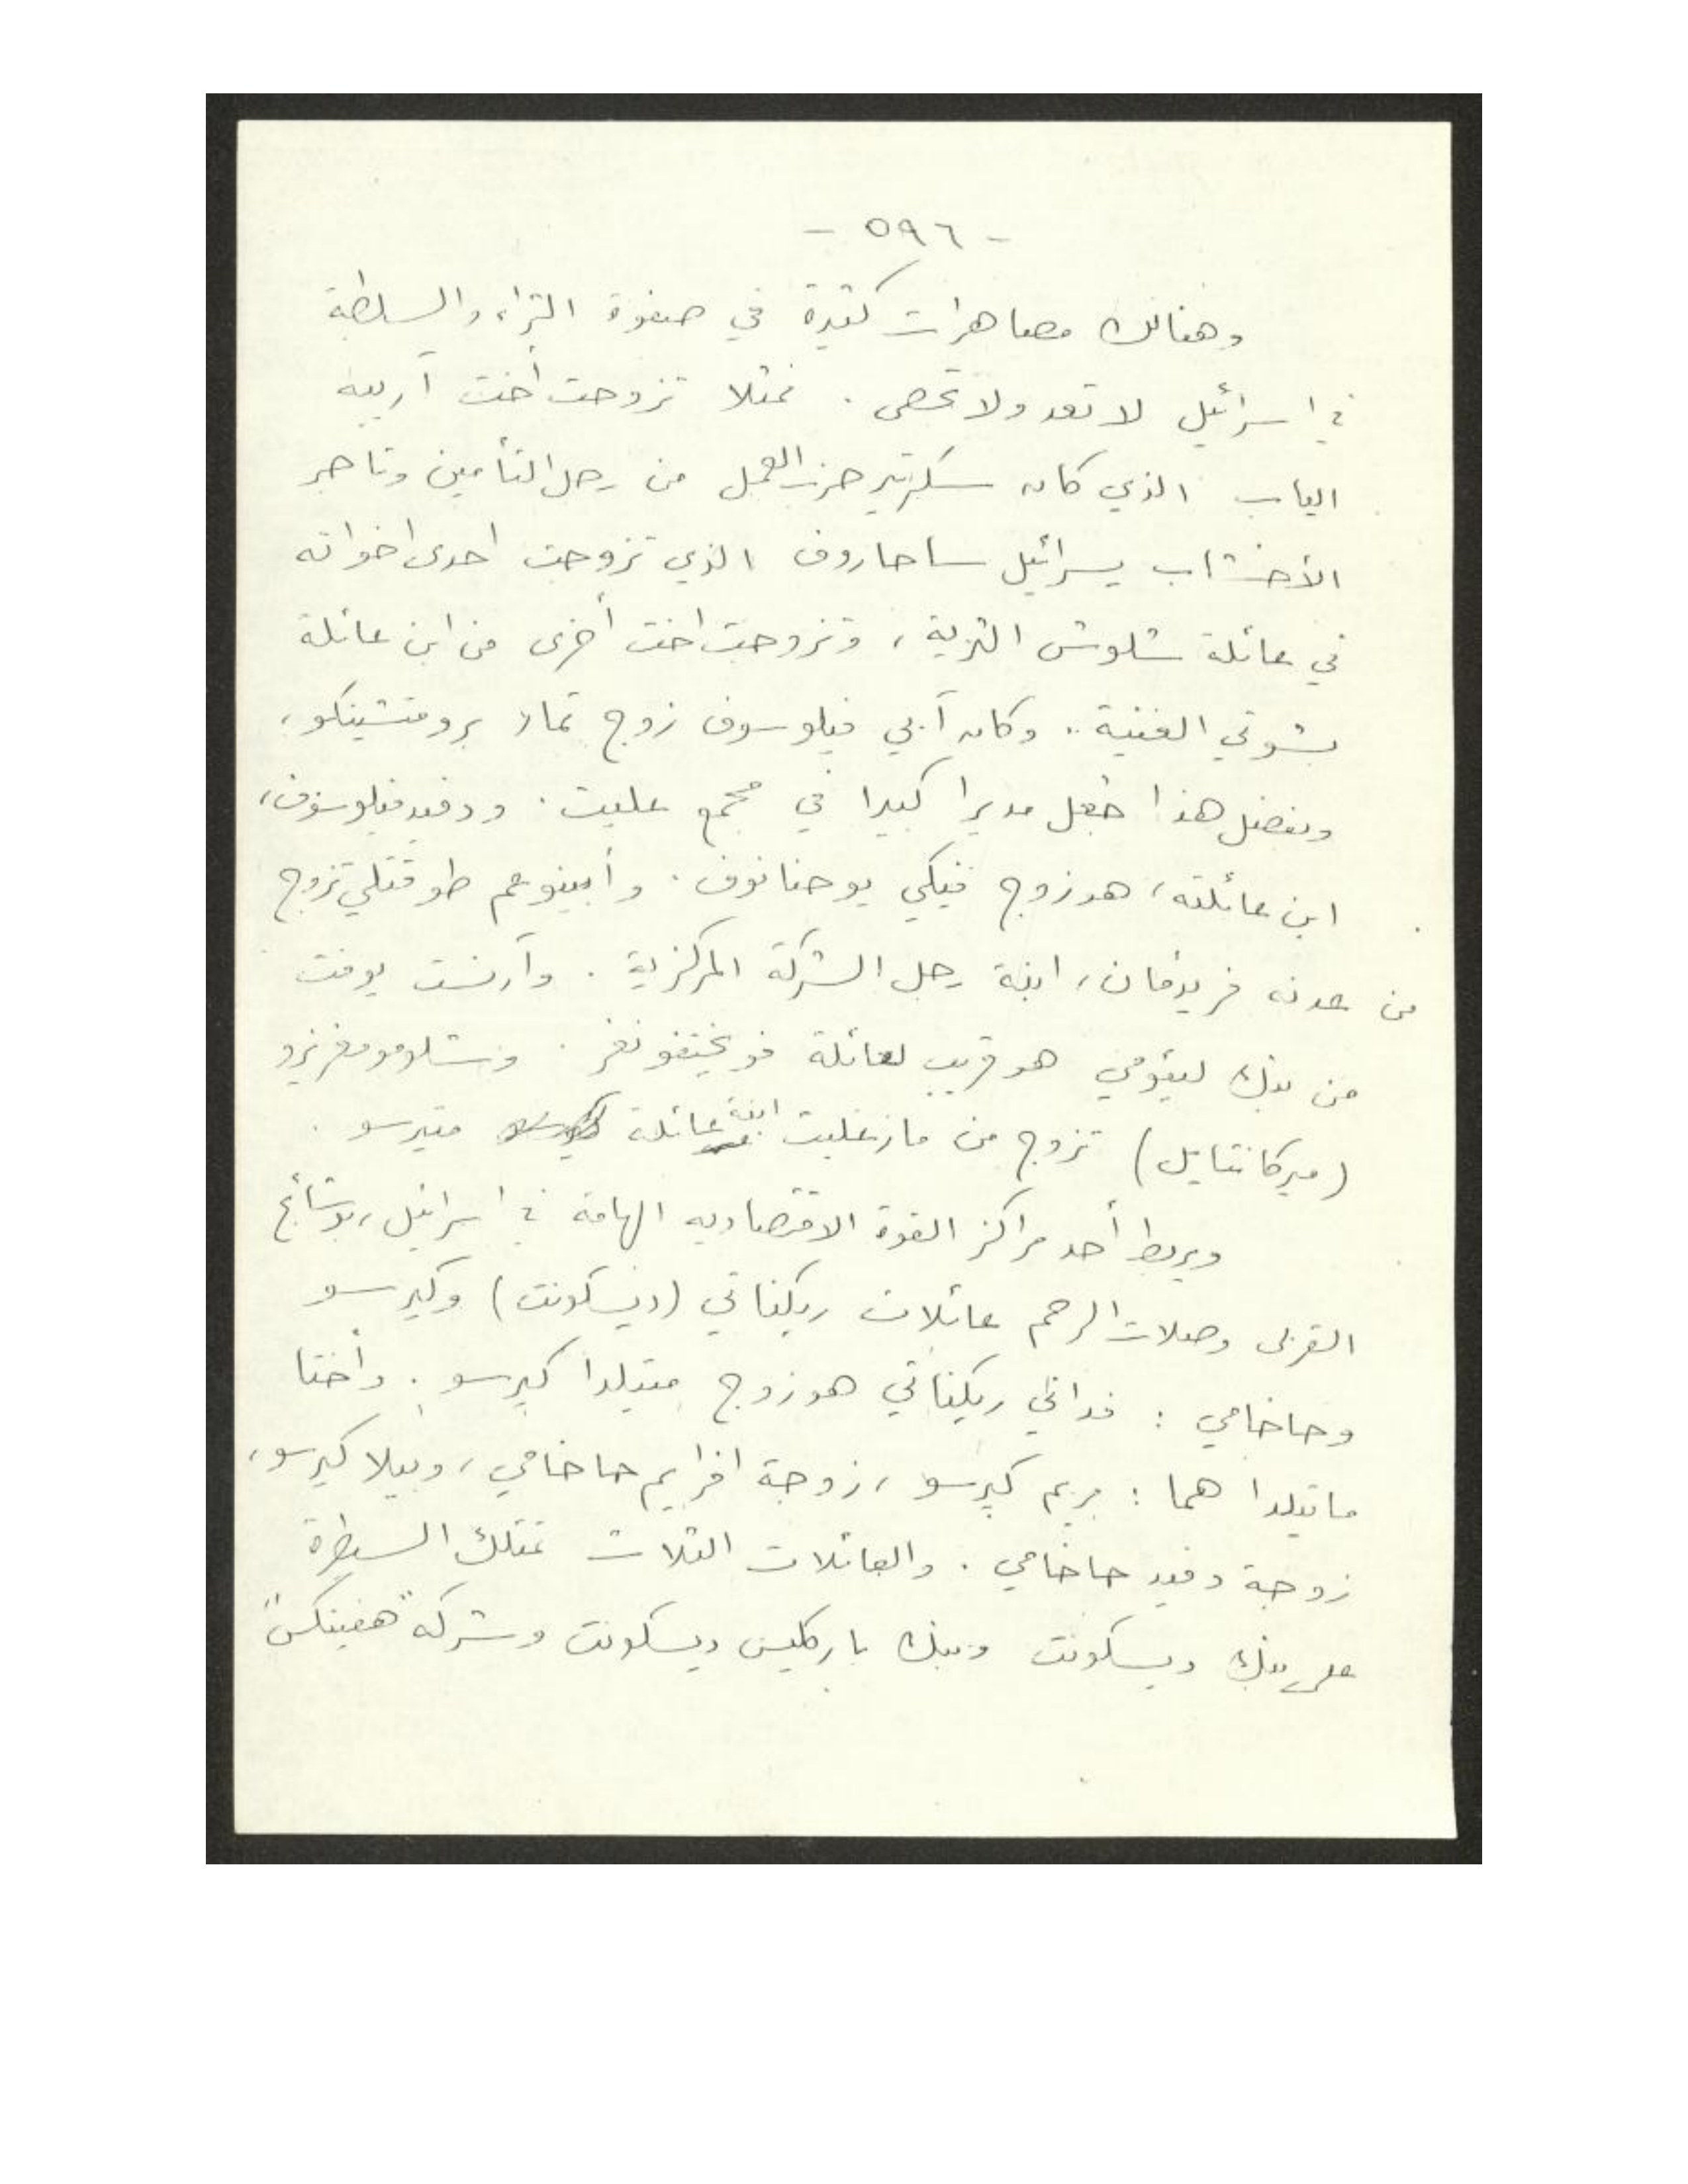 - ٥٩٦ -
وهنالك مصاهرات كثيرة في صفوة الثراء والسلطة
في اسرائيل لا تعد ولا تحصى . فمثلا تزوجت أخت آرييه
الياب الذي كان سكرتير حزب العمل من رجل التأمين وتاجر
الأخشاب يسرائيل ساحاروف الذي تزوجت احدى اخواته
في عائلة شلوش الثرية، وتزوجت اخت أخرى من ابن عائلة
بشوتي الغنية .. وكان آبي فيلوسوف زوج تمار برومتشينكو،
وبفضل هذا جُعل مديرا كبيرا في مجمع عليت . ودفيد فيلوسوف،
ابن عائلته، هو زوج فيكي يوحنانوف . وأبينوعم طوقتلي تزوج
من عدنه فريدمان، ابنة رجل الشركة المركزية . وآرنست يوفت
من بنك ليئومي هو قريب لعائلة فويختفونغر . وشلومو مغريزو
(ميركانتايل) تزوج من مارغليت ابنة عائلة متيرسو .
ويربط أحد مراكز القوة الاقتصاديه الهامة في اسرائيل، بوشائج
القربى وصلات الرحم عائلات ريكناتي (ديسكونت) وكيرسو
وحاخامي : فداني ريكناتي هو زوج متيلدا كيرسو . وأختا
ماتيلدا هما : مريم كيرسو، زوجة افرايم حاخامي، وبيلا كيرسو،
زوجة دفيد حاخامي . والعائلات الثلاث تمتلك السيطرة
على بنك ديسكونت وبنك باركليس ديسكونت وشركه "هفينكس"